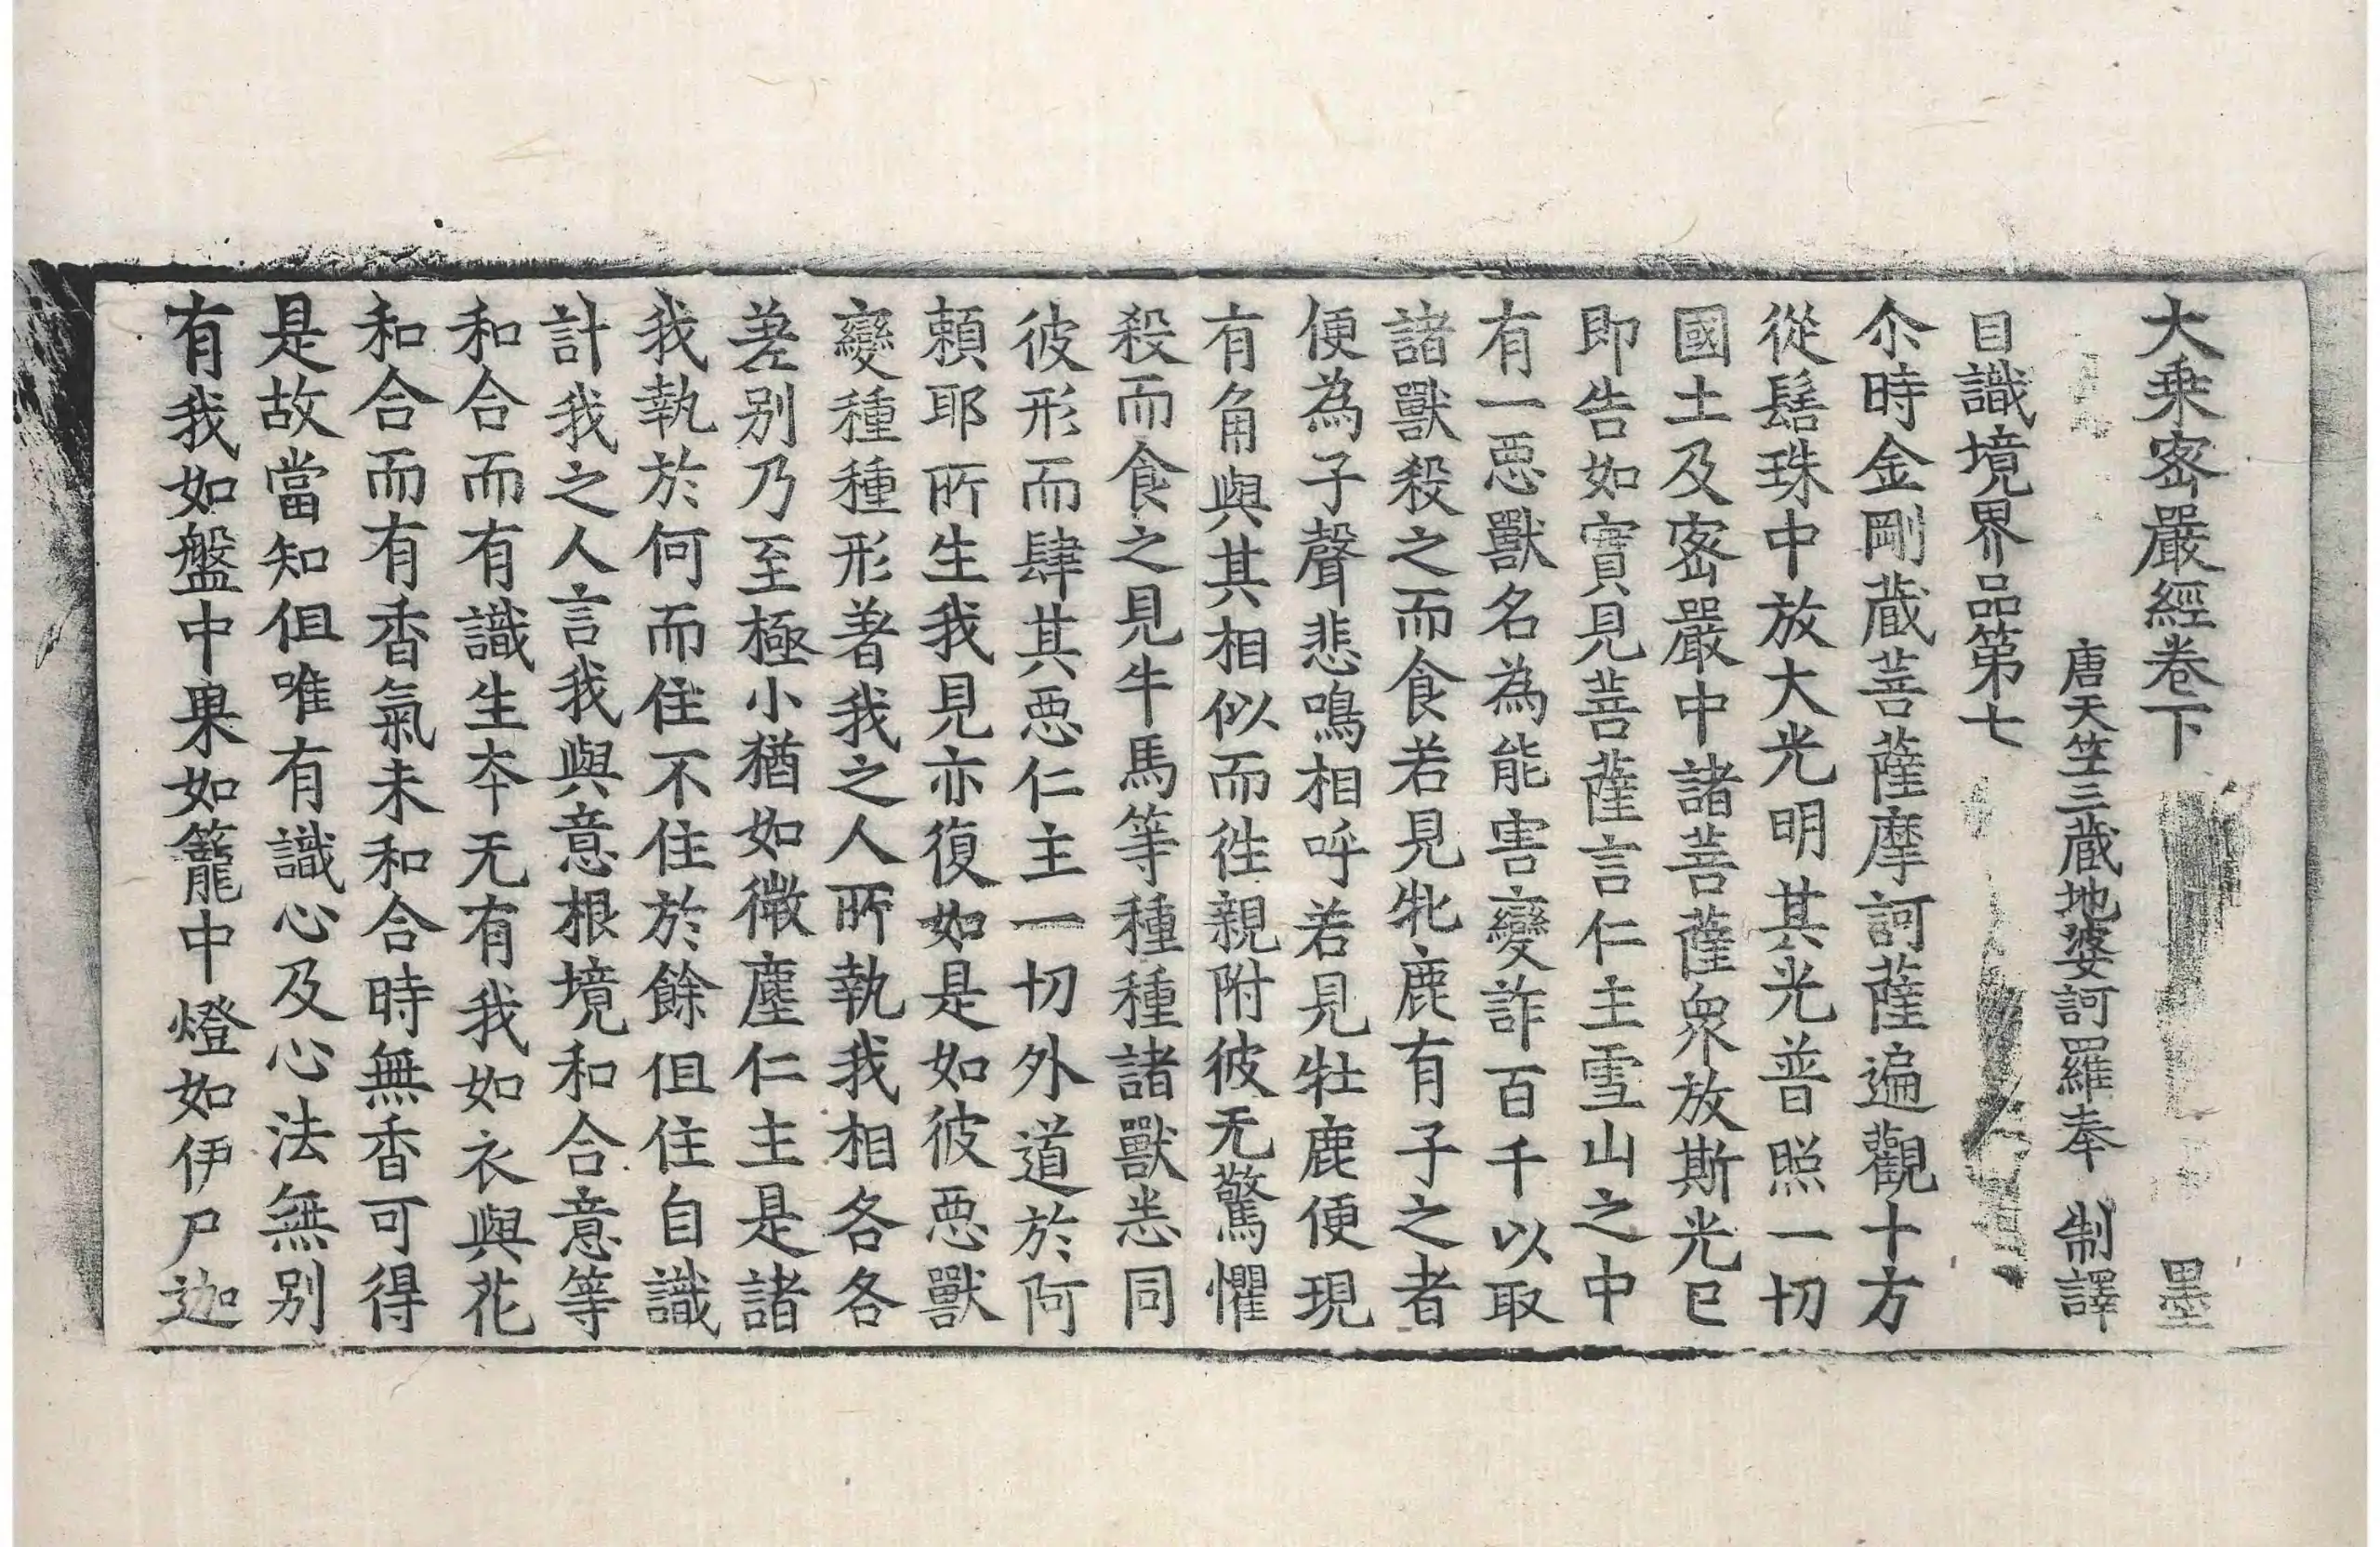 大乗宻嚴經卷下 墨
唐天竺三藏地婆訶羅奉 制譯
目識境界品第七
尒時金剛藏菩薩摩訶薩遍觀十方
從髻珠中放大光明其光普照一切
國土及宻嚴中諸菩薩衆放斯光已
即告如實見菩薩言仁主雪山之中
有一惡獸名為能害變詐百千以取
諸獸殺之而食若見牝鹿有子之者
便為子聲悲鳴相呼若見牡鹿便現
有角與其相似而徃親附彼无驚懼
殺而食之見牛馬等種種諸獸悉同
彼形而肆其惡仁主一切外道於阿
頼耶所生我見亦復如是如彼惡獸
變種種形著我之人所執我相各各
差别乃至極小猶如微塵仁主是諸
我執於何而住不住於餘但住自識
計我之人言我與意根境和合意等
和合而有識生夲无有我如衣與花
和合而有香氣未和合時無香可得
是故當知但唯有識心及心法無别
有我如盤中果如籠中燈如伊尸迦